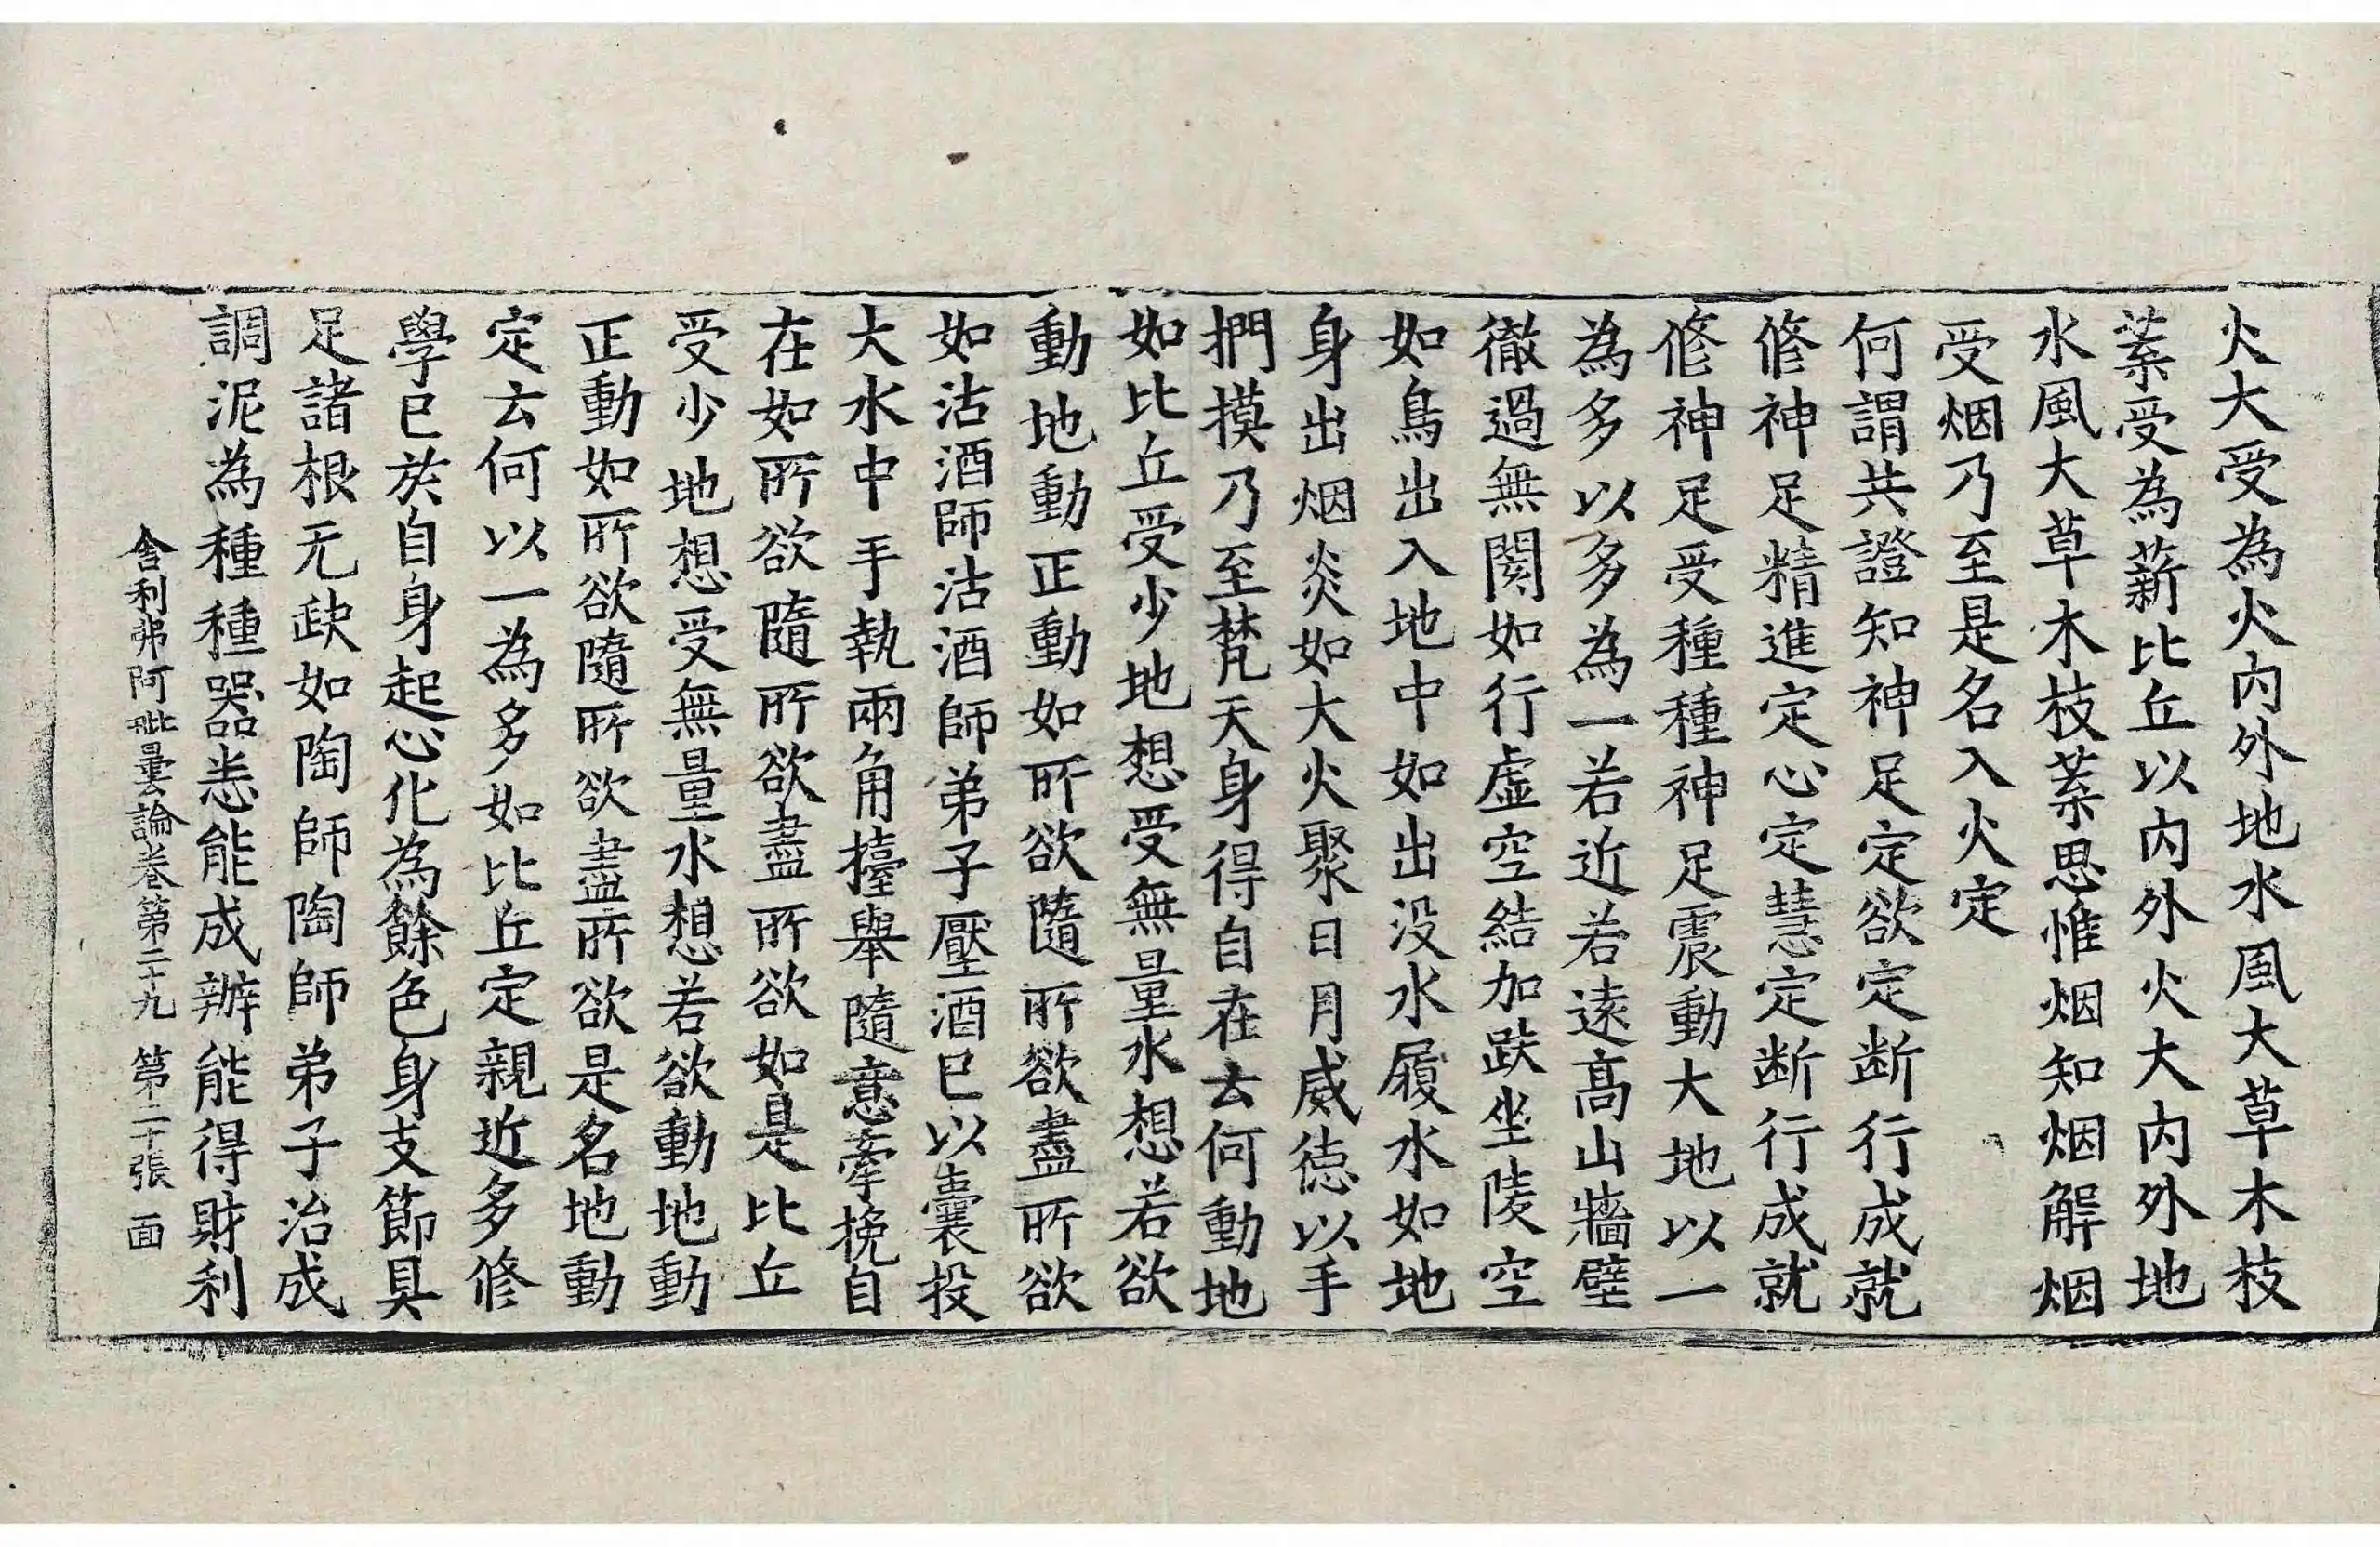 火大受為火內外地水風大草木枝
葉受為薪比丘以內外火大內外地
水風大草木枝葉思惟烟知烟解烟
受烟乃至是名入火定
何謂共證知神足定欲定断行成就
修神足精進定心定慧定断行成就
修神足受種種神足震動大地以一
為多以多為一若近若遠髙山牆壁
徹過無閡如行虛空結加趺坐陵空
如鳥出入地中如出没水履水如地
身出烟炎如大火聚日月威德以手
捫摸乃至梵天身得自在云何動地
如比丘受少地想受無量水想若欲
動地動正動如所欲隨所欲盡所欲
如沽酒師沽酒師弟子壓酒已以囊投
大水中手執兩角擡舉隨意牽挽自
在如所欲隨所欲盡所欲如是比丘
受少地想受無量水想若欲動地動
正動如所欲隨所欲盡所欲是名地動
定云何以一為多如比丘定親近多修
學已於自身起心化為餘色身支節具
足諸根无缺如陶師陶師弟子治成
調泥為種種器悉能成辦能得財利
舍利弗阿毗曇論卷第二十九 第二十張 面